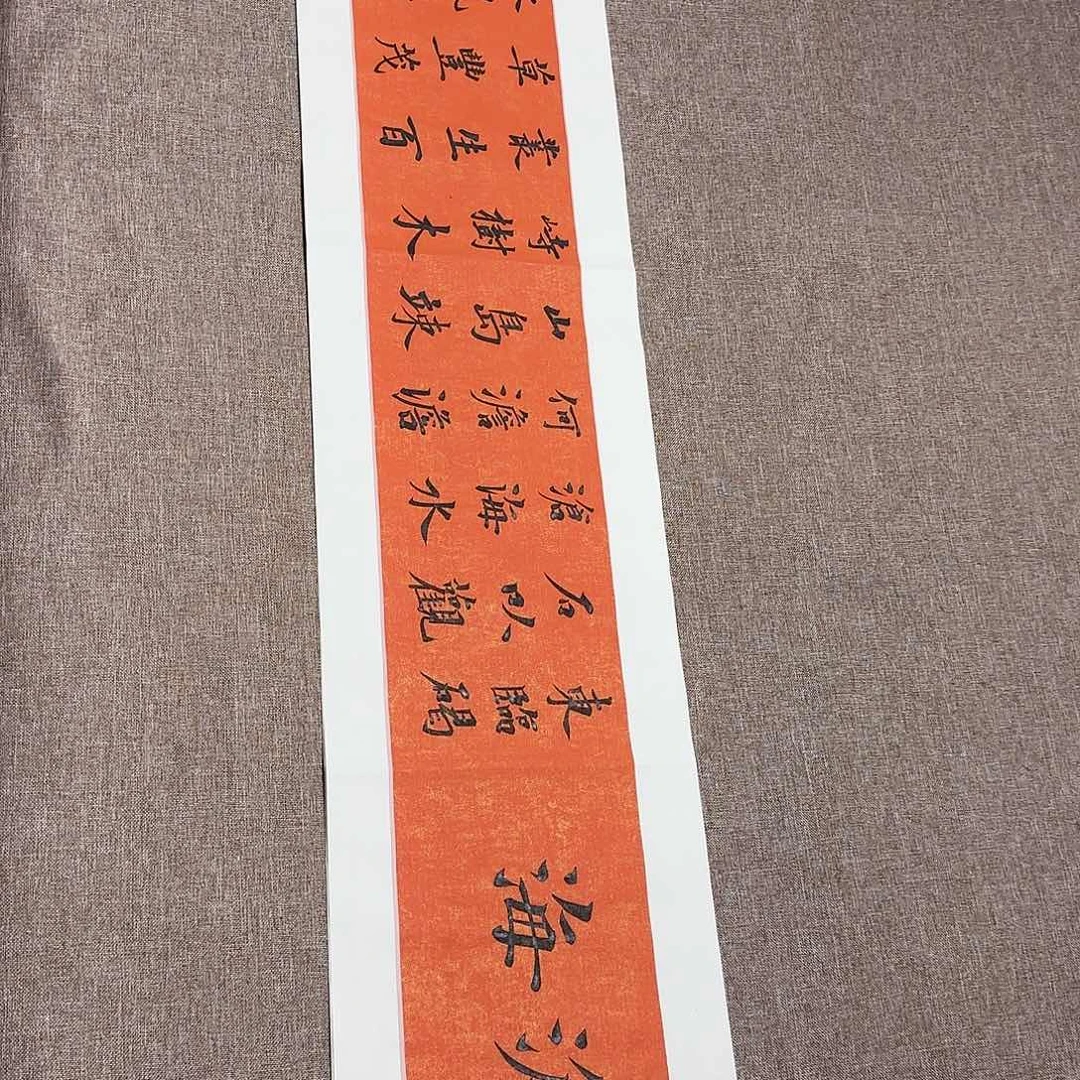 海
東臨碣
石以觀
滄海水
何澹澹
山島竦
峙樹木
叢生百
草豐茂